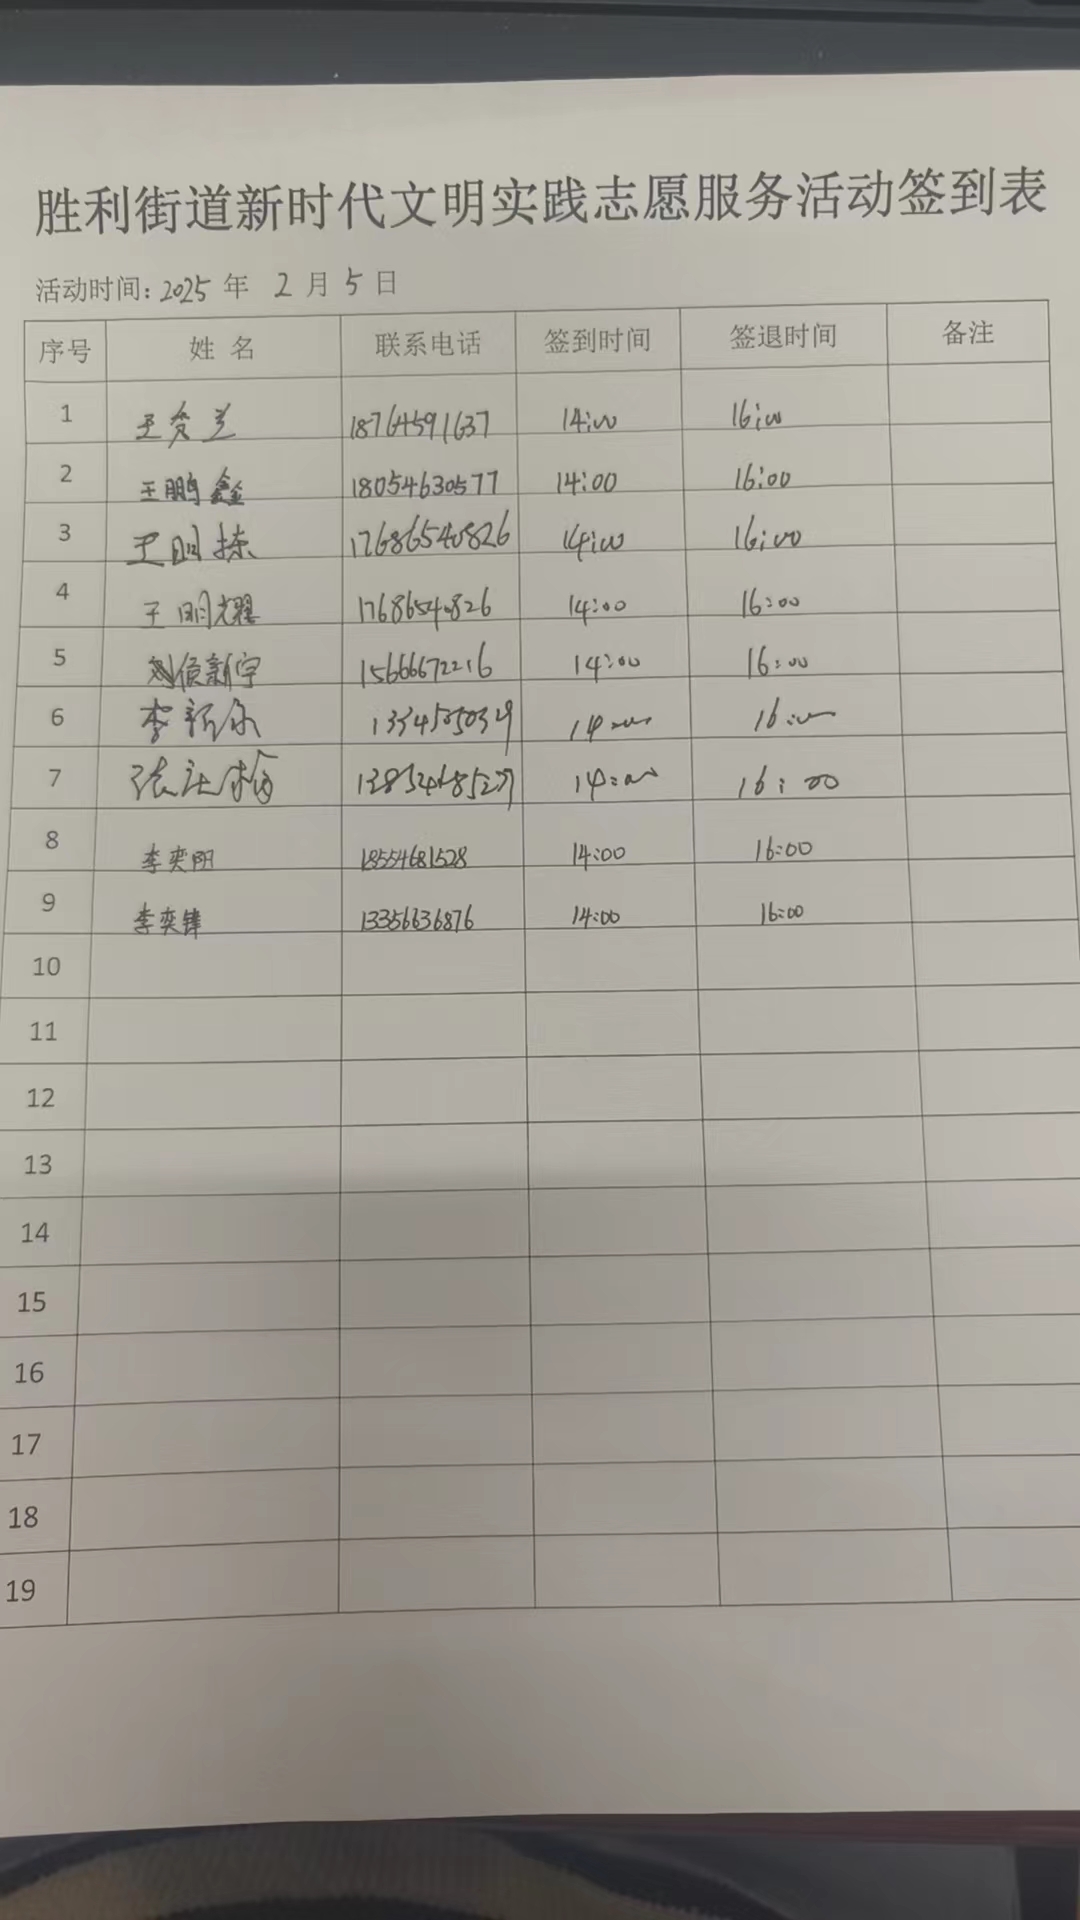 胜利街道新时代文明实践志愿服务活动签到表
活动时间:2025 年 2 月 5 日
序号 姓 名 联系电话 签到时间 签退时间 备注
1 王爱兰 18764591637 14:00 16:00
2 王鹏鑫 18054630577 14:00 16:00
3 王明栋 17686540826 14:00 16:00
4 王明耀 17686540826 14:00 16:00
5 刘侯新宇 15666672216 14:00 16:00
6 李 14:00 16:00
7 张 14:00 16:00
8 李奕阳 18554681528 14:00 16:00
9 李奕锋 13356636876 14:00 16:00
10
11
12
13
14
15
16
17
18
19